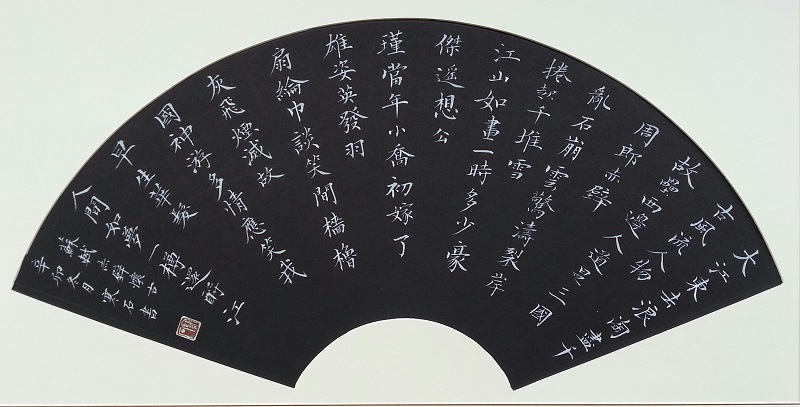 大江東去浪淘盡千
古風流人物
故壘西邊人道是三國
周郎赤壁
亂石崩雲驚濤裂岸
捲起千堆雪
江山如畫一時多少豪
傑遥想公
瑾當年小喬初嫁了
雄姿英發羽
扇綸巾談笑間檣櫓
灰飛煙滅故
國神游多情應笑我
早生華髮
人間如夢一樽還酹江
蘇軾赤壁懷古
辛卯冬月寒石書